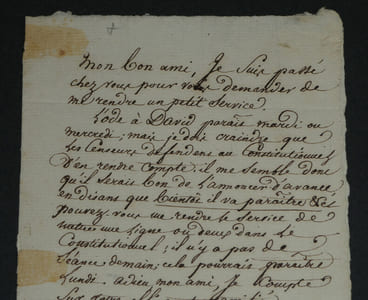 mon bon ami, Je suis passé
chez vous pour vous demander de
me rendre un petit service.
L'ode à David paraît mardi ou
mercredi; mais je dois craindre que
les Censeurs défendent au Constitutionnel
D'en rendre compte. il me semble donc
qu'il serait bon de l'annoncer d'avance
en disant que bientôt il va paraître
pouvez vous me rendre le service de
mettre une ligne ou deux dans le
Constitutionnel; il n'y a pas de
séance demain, cela pourrait paraître
Lundi. adieu, mon ami, Je compte
sur